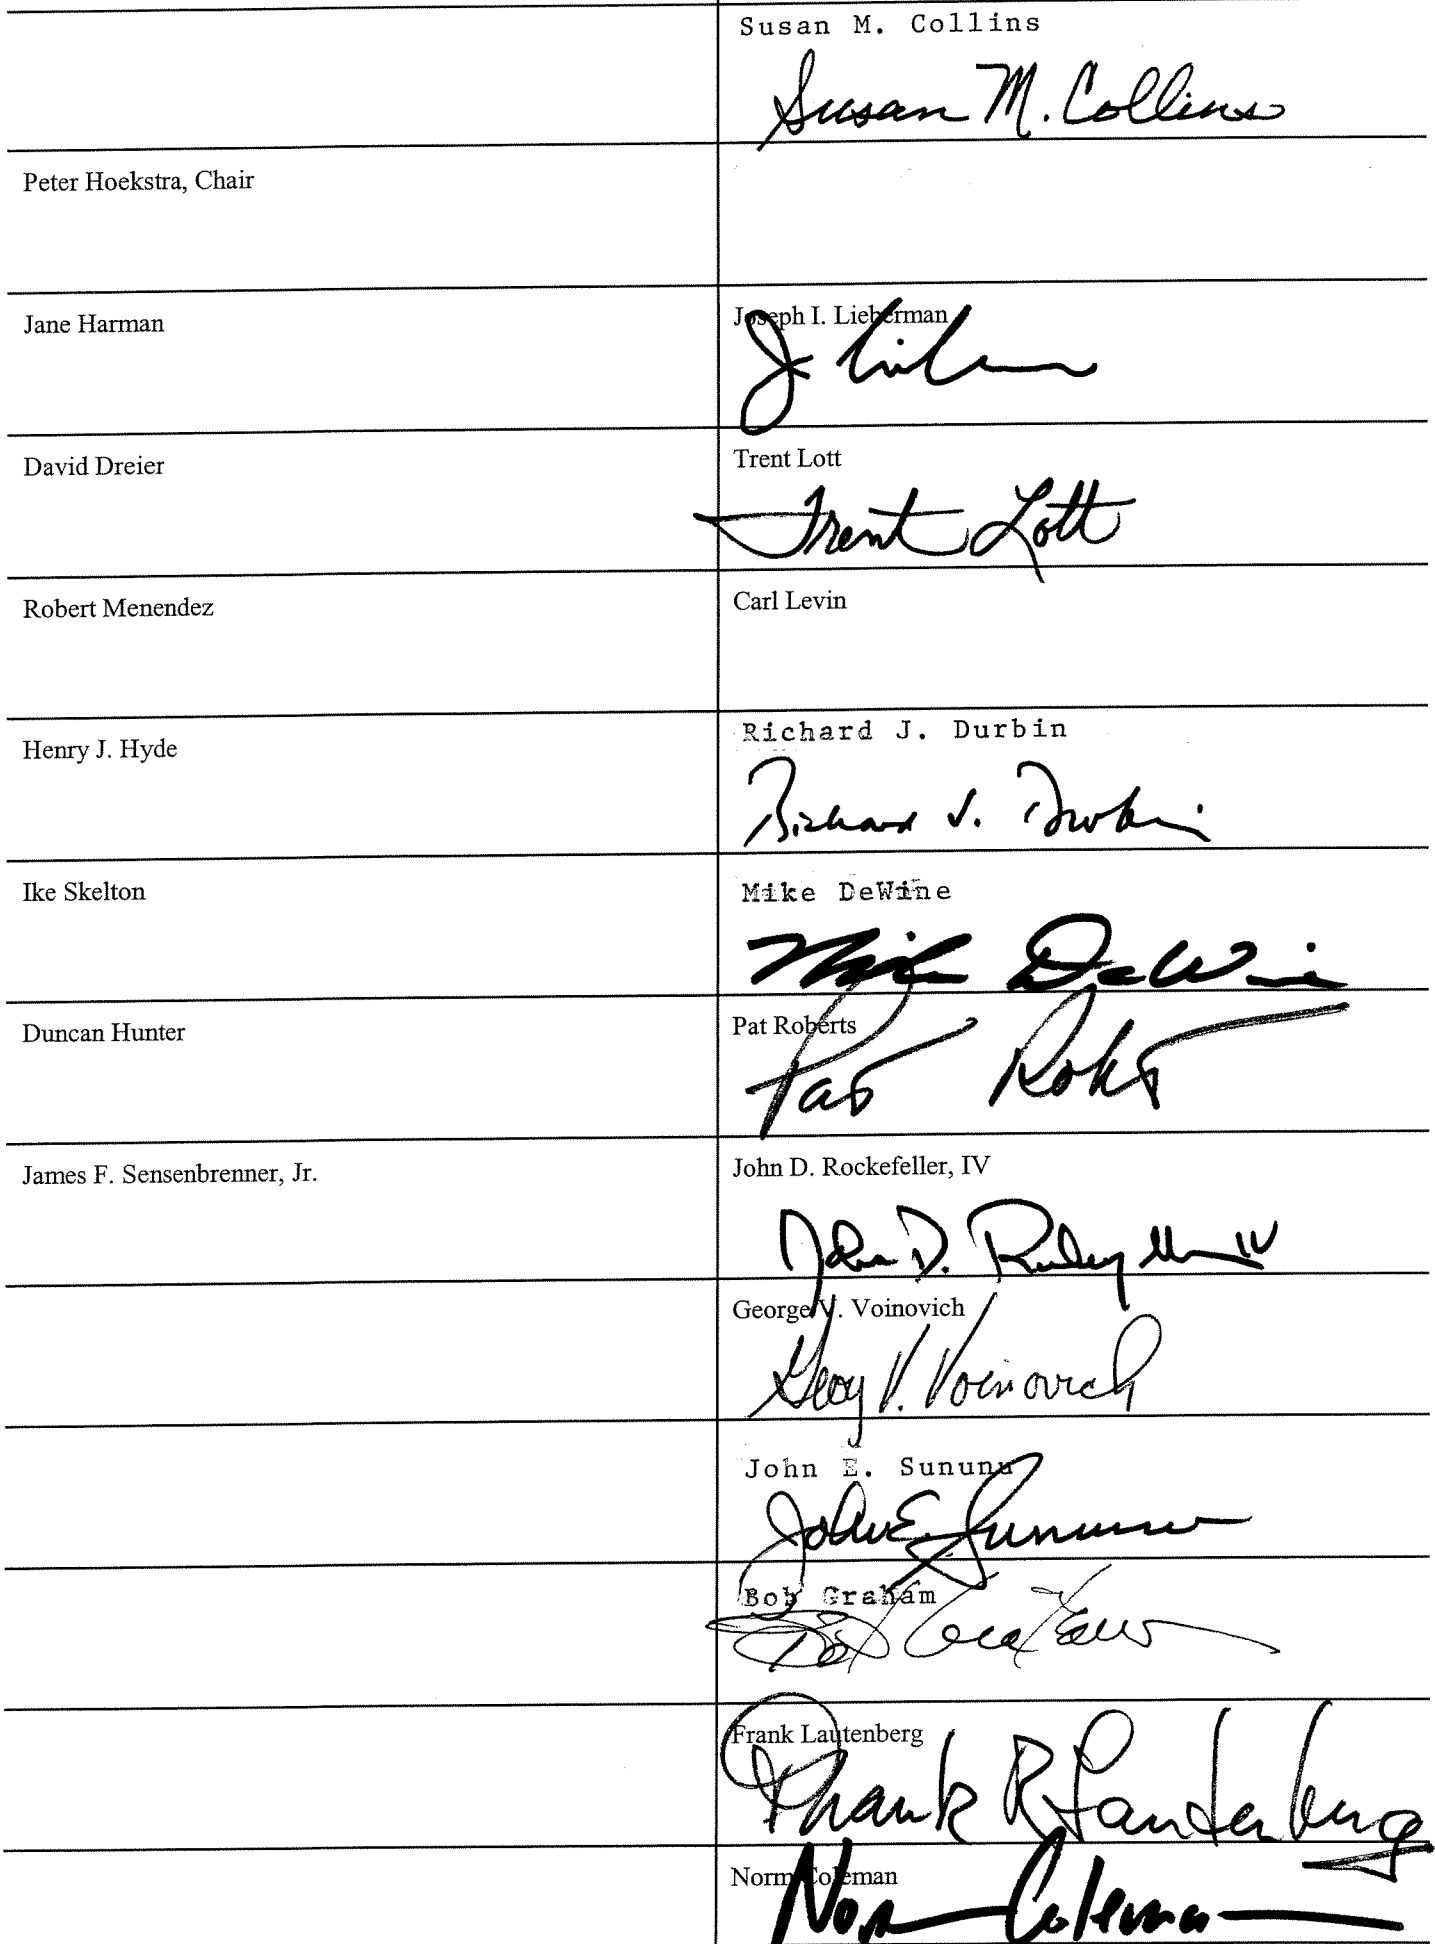 Susan M. Collins
Susan M. Collins
Peter Hoekstra, Chair
Jane Harman
Joseph I. Lieberman
David Dreier
Trent Lott
Trent Lott
Robert Menendez
Carl Levin
Henry J. Hyde
Richard J. Durbin
Richard J. Durbin
Ike Skelton
Mike DeWine
Mike DeWine
Duncan Hunter
Pat Roberts
Pat Roberts
James F. Sensenbrenner, Jr.
John D. Rockefeller, IV
John D. Rockefeller IV
George V. Voinovich
George V. Voinovich
John E. Sununu
John E. Sununu
Bob Graham
Bob Graham
Frank Lautenberg
Frank R Lautenberg
Norm Coleman
Norm Coleman